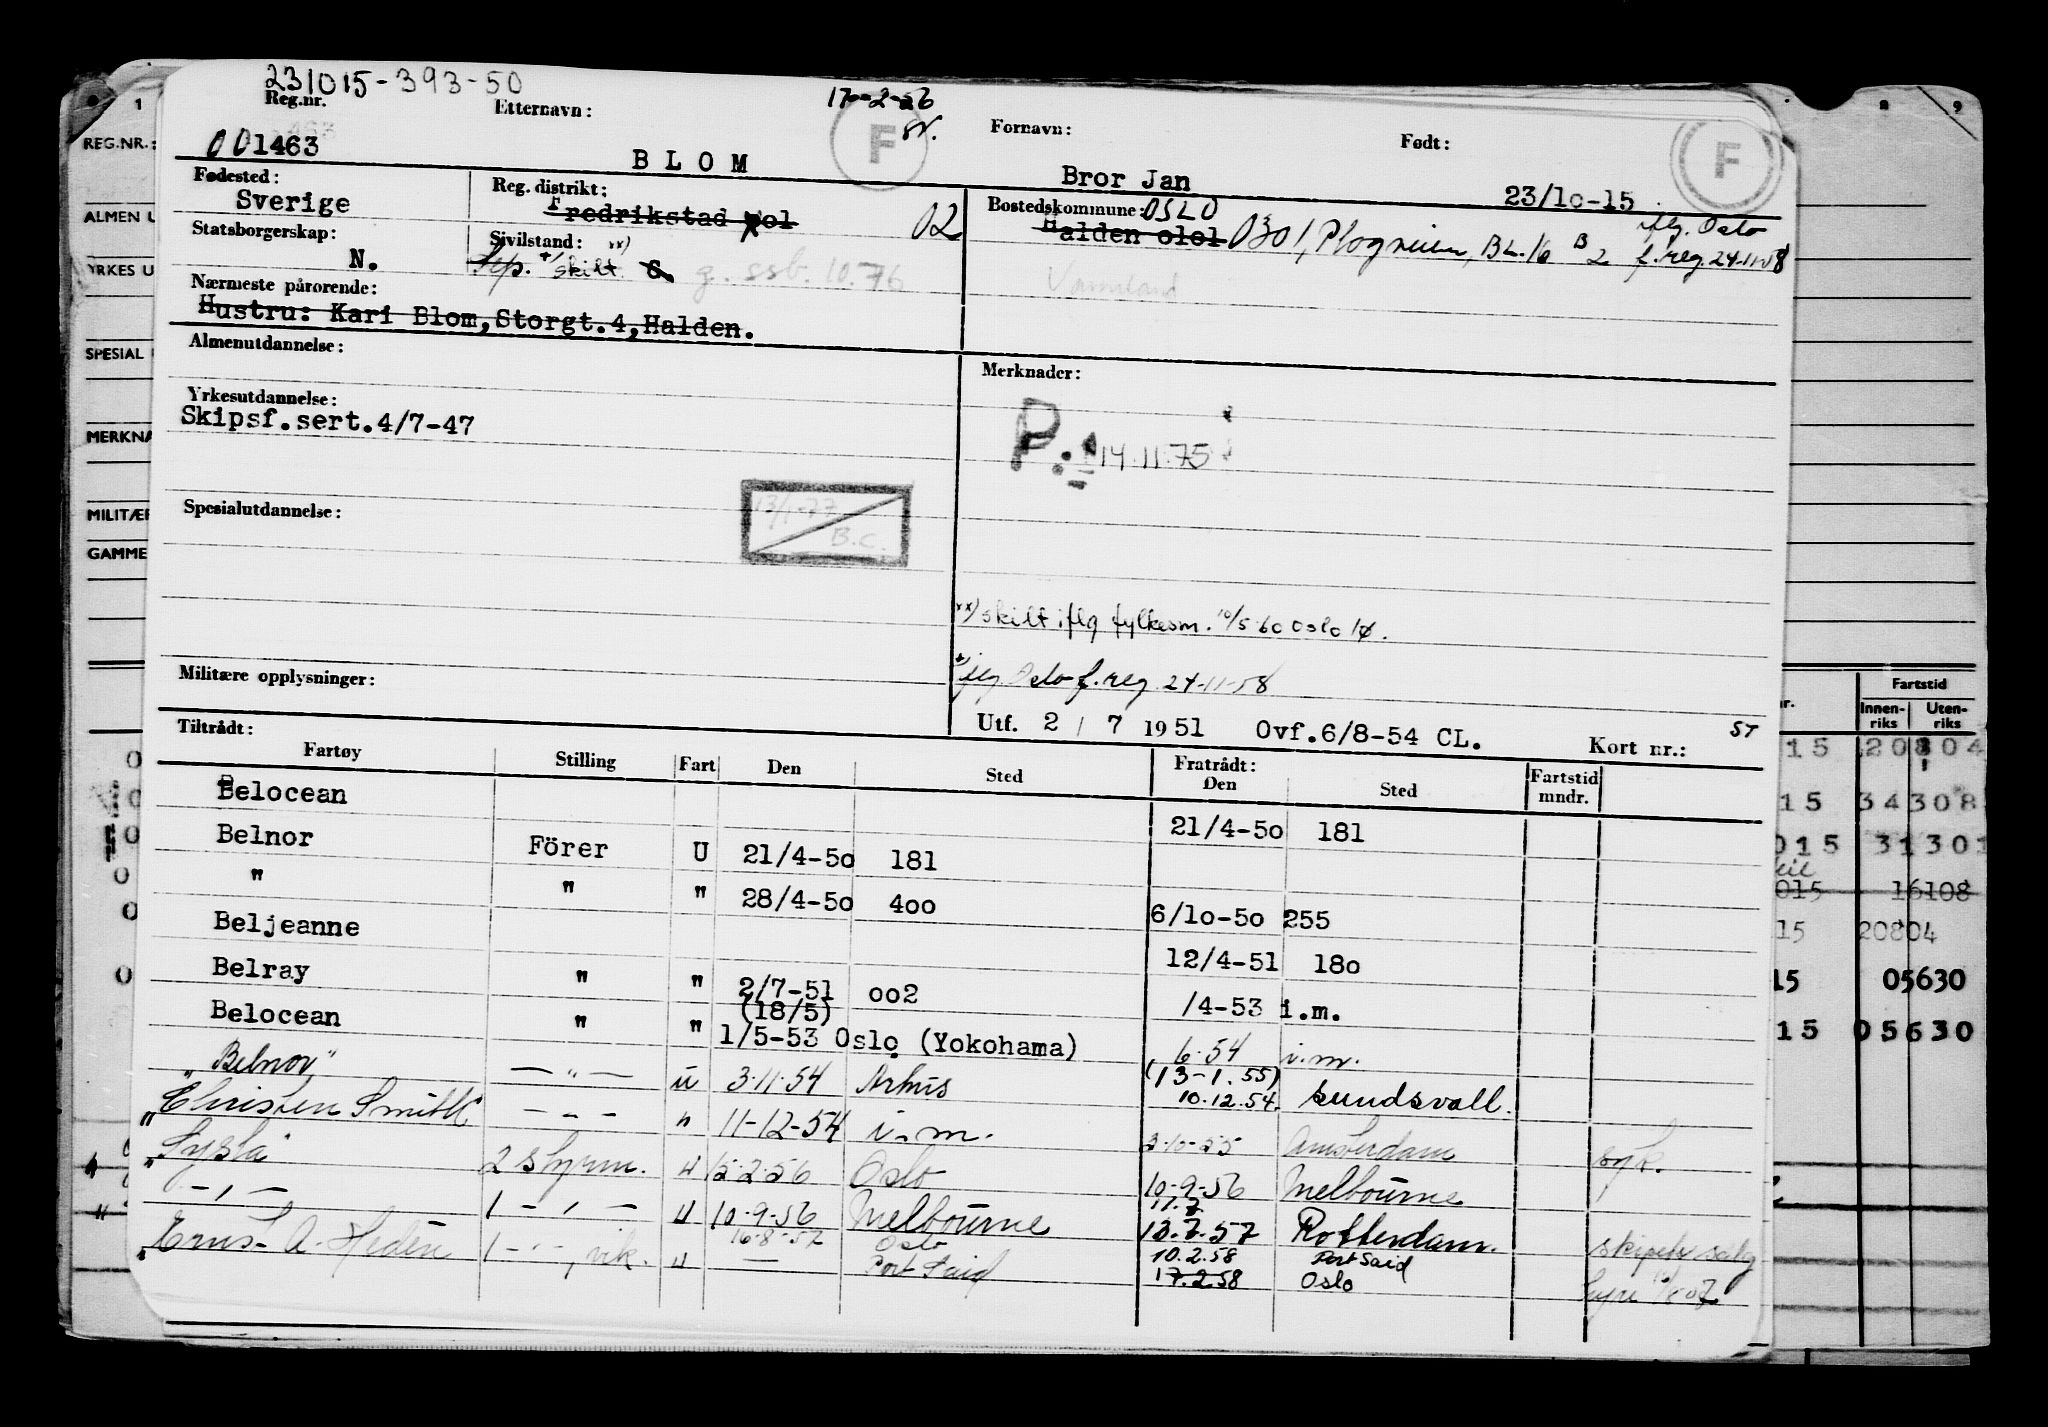 231015-393-50
17-2-56
Reg.nr. Etternavn: Fornavn: Født:
001463 BLOM F Bror Jan 23/10-15 F
Fødested: Reg. distrikt: Bostedskommune: OSLO
Sverige Fredrikstad 02 Halden 0301, Plogveien, BL. 16 B 2 iflg. Oslo f.reg. 24-11-58
Statsborgerskap: Sivilstand: xx)
N. Sep. +) skilt. G. g. ssb. 10.76
Nærmeste pårørende:
Hustru: Kari Blom, Storgt.4, Halden.
Almenutdannelse: Merknader:
Yrkesutdannelse:
Skipsf.sert.4/7-47
P. 14.11.75
Spesialutdannelse:
13/1-77
B.C.
xx) skilt iflg fylkesm. 10/5 60 Oslo
+) iflg Oslo f.reg. 24-11-58
Militære opplysninger:
Utf. 2 / 7 1951 Ovf.6/8-54 CL. Kort nr.: ST
Tiltrådt: Fratrådt:
Fartøy Stilling Fart Den Sted Den Sted Fartstid mndr.
Belocean 21/4-50 181
Belnor Förer U 21/4-50 181
" " " 28/4-50 400 6/10-50 255
Beljeanne 12/4-51 180
Belray " " 2/7-51 002 /4-53 i.m.
(18/5)
Belocean " " 1/5-53 Oslo (Yokohama) 6.54 i.m.
"Belnor" — " — u 3.11.54 Århus (13-1.55) 10.12.54. Sundsvall.
"Christen Smith" - - - " 11-12-54 i.m. 3-10-55 Amsterdam syk.
"Sysla" 2 styrm. u 15.2.56 Oslo 10-9-56 Melbourne
- " - 1 - " - u 10-9-56 Melbourne 11.7 12.7.57 Rotterdam.
16-8-57 Oslo
1 - " -, vik. u — Port Said 10.2.58 Port Said
17.2.58 Oslo
1 8 9
REG.NR.:
ALMEN U
YRKES U
SPESIAL
MERKNA
MILITÆR
GAMME
Fartstid
Innenriks Utenriks
15 20804
15 34308
015 31301
015 16108
15 20804
15 05630
15 05630